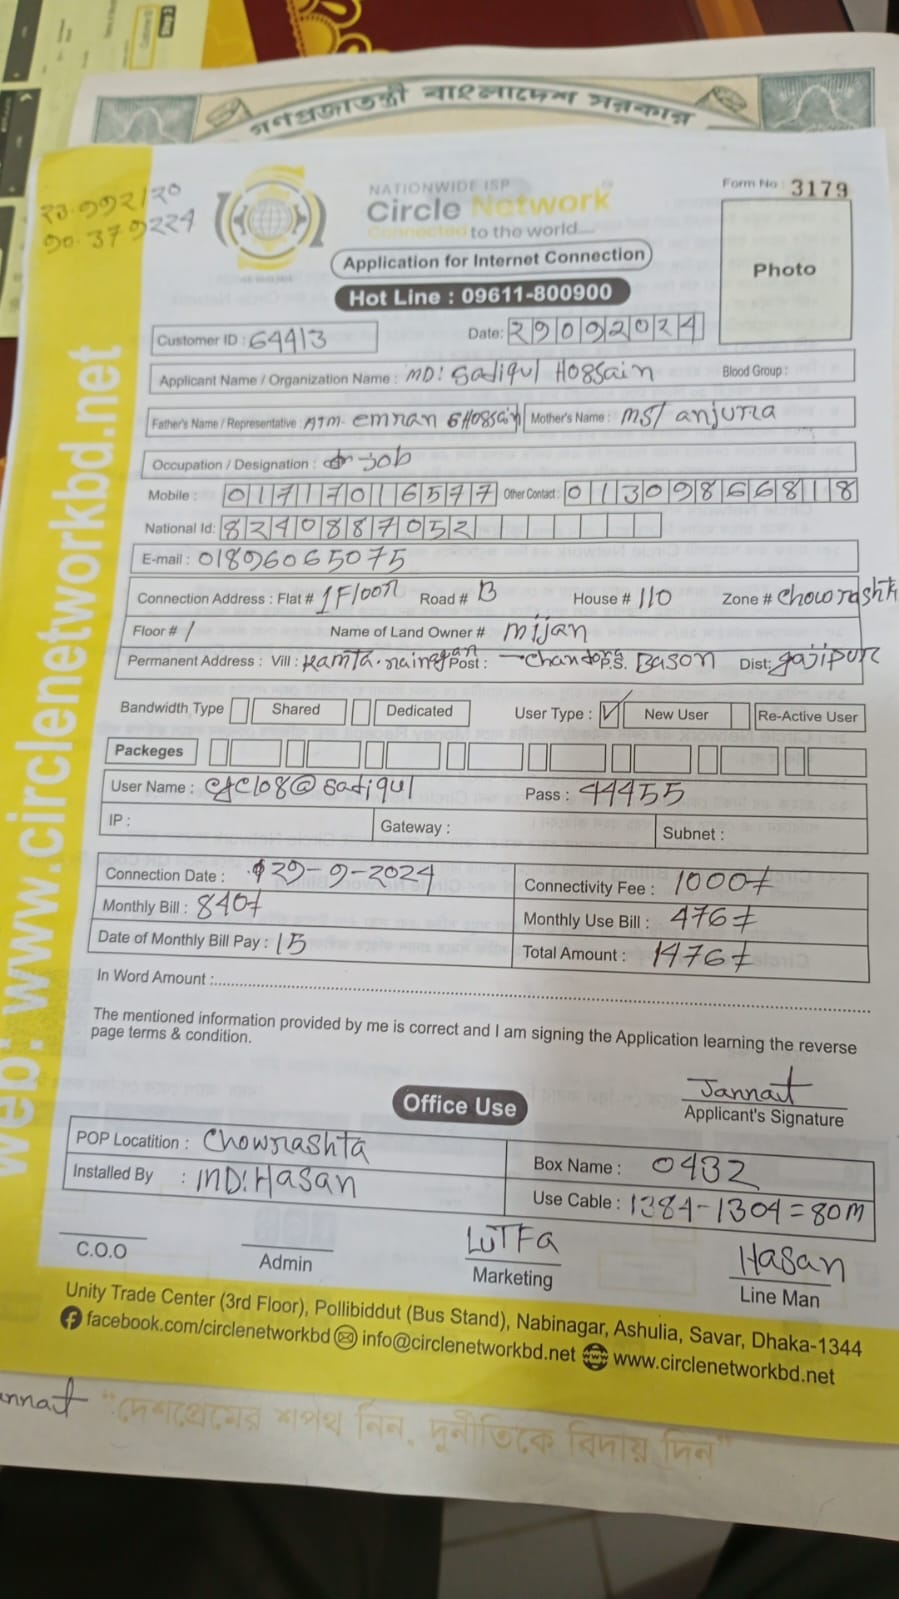 গণপ্রজাতন্ত্রী বাংলাদেশ সরকার
NATIONWIDE ISP
Circle Network
Connected to the world....
Form No : 3179
Photo
Application for Internet Connection
Hot Line : 09611-800900
Customer ID : 64413 Date: 29092024
Applicant Name / Organization Name : MD: Sadiqul Hossain Blood Group :
Father's Name / Representative : ATM. emran Hossain Mother's Name : MST anjura
Occupation / Designation : job
Mobile : 01717016577 Other Contact : 01309866818
National Id: 8240887052
E-mail : 01896065075
Connection Address : Flat # 1 Floor Road # B House # 110 Zone # Chowrashta
Floor # 1 Name of Land Owner # mijan
Permanent Address : Vill : Post : Chandona P.S. Bason Dist: gajipur
Bandwidth Type Shared Dedicated User Type : ✓ New User Re-Active User
Packeges
User Name : cfc108@sadiqul Pass : 44455
IP : Gateway : Subnet :
Connection Date : 29-9-2024 Connectivity Fee : 1000/=
Monthly Bill : 840/= Monthly Use Bill : 476/=
Date of Monthly Bill Pay : 15 Total Amount : 1476/=
In Word Amount :
The mentioned information provided by me is correct and I am signing the Application learning the reverse
page terms & condition.
Jannat
Applicant's Signature
Office Use
POP Locatition : Chowrashta Box Name : 0432
Installed By : MD: Hasan Use Cable : 1384-1304=80M
C.O.O Admin LUTFA Marketing Hasan Line Man
Unity Trade Center (3rd Floor), Pollibiddut (Bus Stand), Nabinagar, Ashulia, Savar, Dhaka-1344
facebook.com/circlenetworkbd info@circlenetworkbd.net www.circlenetworkbd.net
web: www.circlenetworkbd.net
"দেশপ্রেমের শপথ নিন, দুর্নীতিকে বিদায় দিন"